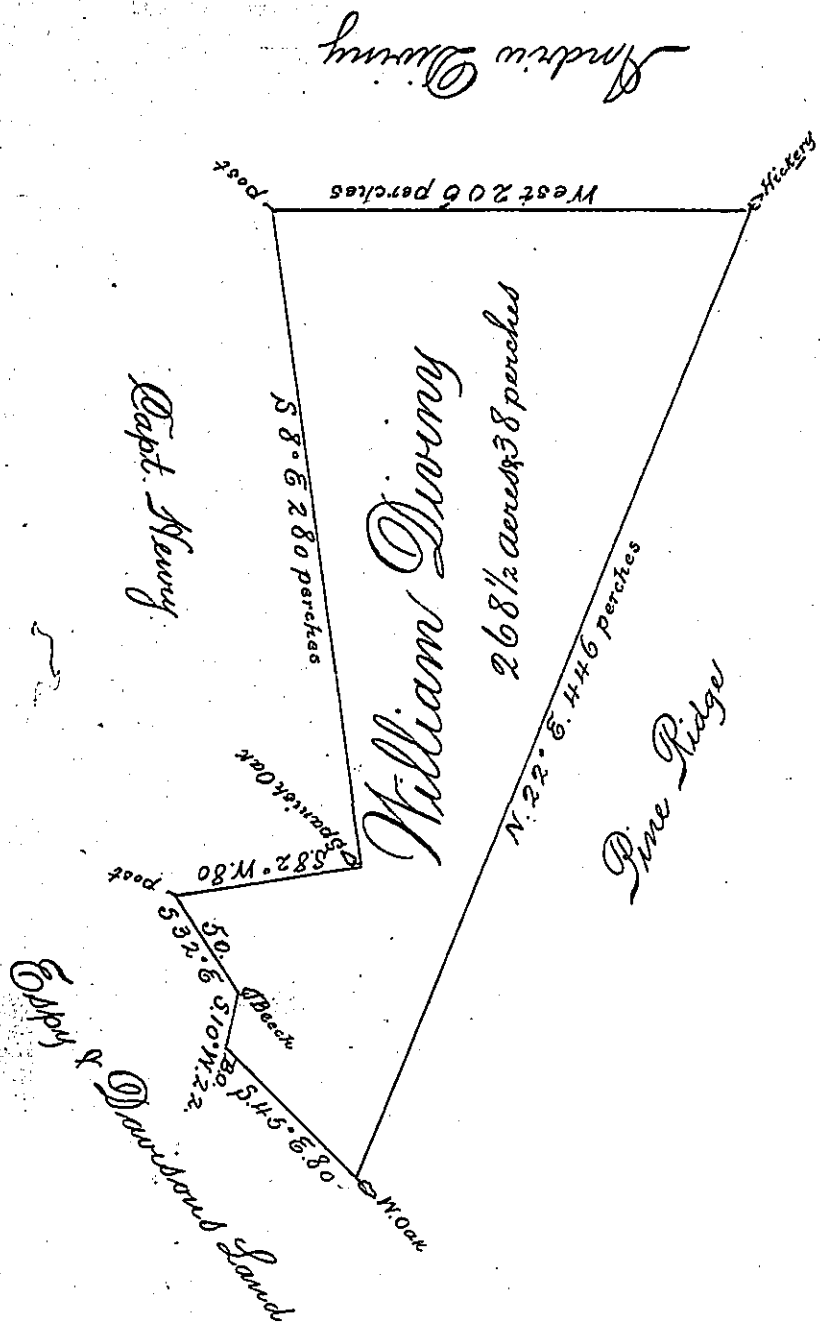 Andrew Diviny
Hickery
West 206 perches
post
S 8° E 280 perches
Capt. Henry
William Diviny
268½ acres & 38 perches
N. 22° E. 446 perches
Pine Ridge
Spanish Oak
S. 82° W. 80
post
50.
S 32° E
Beech
S. 10° W. 22.
B.O
S 45° E. 80.
W. Oak
Espy & Davisons Land